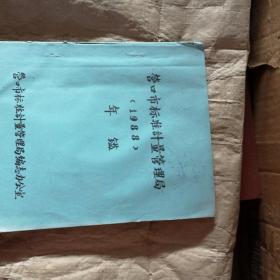 营口市标准計量管理局
（1988）
年鑑
营口市标准計量管理局编志办公室